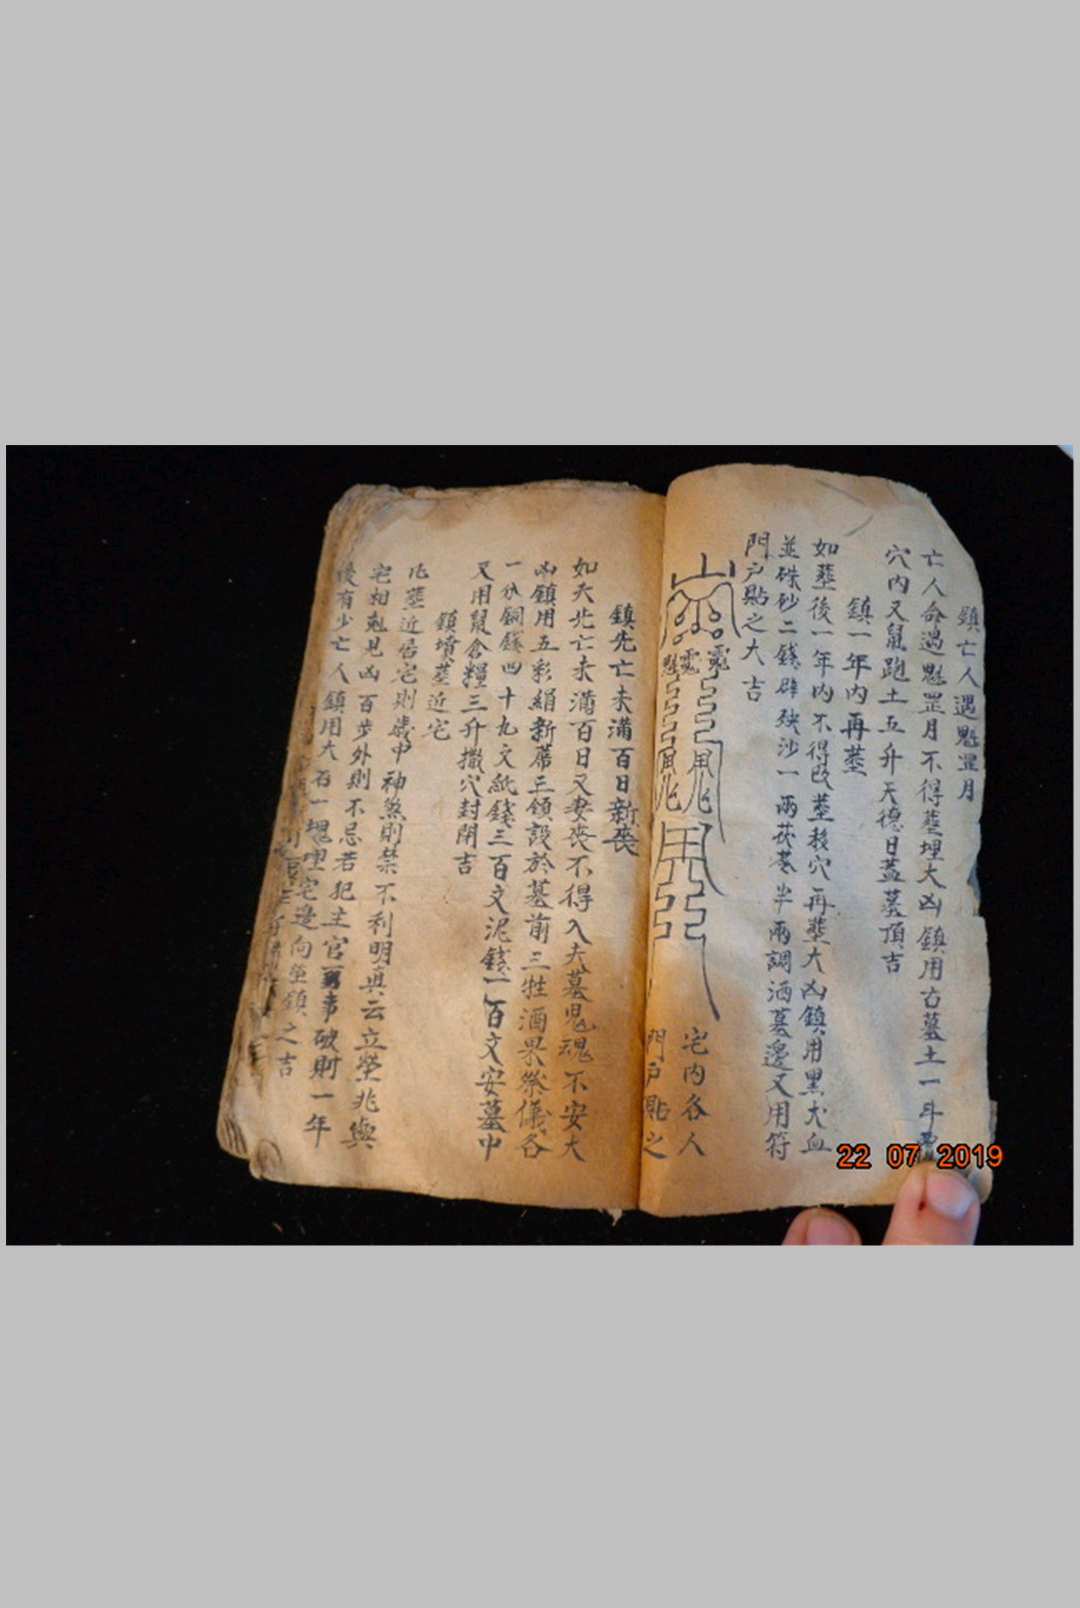 鎮亡人遇魁罡月
亡人命遇魁罡月不得塟埋大凶鎮用古墓土一斗
穴內又鼠跑土五升天德日蓋墓頂吉
鎮一年內再塟
如塟後一年內不得啟塟移穴再塟大凶鎮用黑犬血
並硃砂二錢辟殃沙一兩茯苓半兩調洒墓邊又用符
門户貼之大吉
宅內各人
門户貼之
鎮先亡未滿百日新丧
如夫先亡未滿百日又妻丧不得入夫墓鬼魂不安大
凶鎮用五彩絹新蓆三領設於墓前三牲酒果祭儀各
一分銅錢四十九文紙錢三百文泥錢一百文安墓中
又用鼠倉糧三升撒穴封閉吉
鎮墳塋近宅
凡塋近居宅則歲中神煞則禁不利明真云立塋兆與
宅相尅見凶百步外則不忌若犯主官事破財一年
後有少亡人鎮用大石一塊埋宅邊向塋鎮之吉
22 07 2019